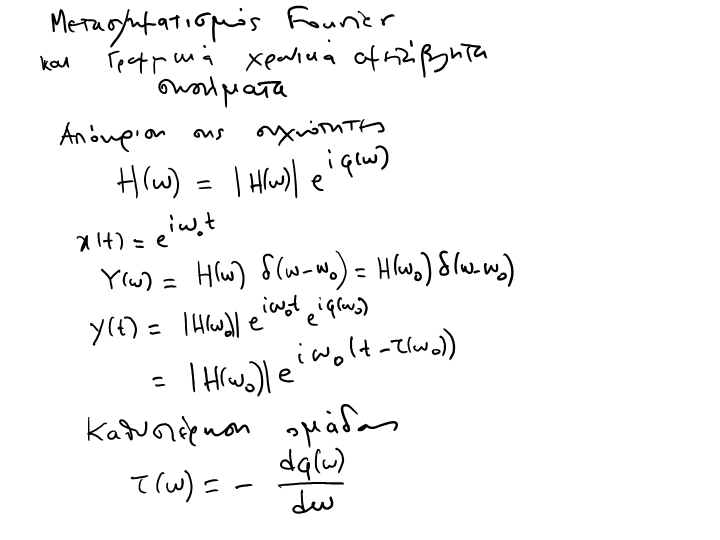 Μετασχηματισμός Fourier
και Γραμμικά χρονικά αμετάβλητα
συστήματα
Απόκριση στις συχνότητες
H(ω) = |H(ω)| e^{iφ(ω)}
x(t) = e^{iω₀t}
Y(ω) = H(ω) δ(ω-ω₀) = H(ω₀) δ(ω-ω₀)
y(t) = |H(ω₀)| e^{iω₀t} e^{iφ(ω₀)}
= |H(ω₀)| e^{iω₀(t-τ(ω₀))}
Καθυστέρηση ομάδας
τ(ω) = - dφ(ω)/dω